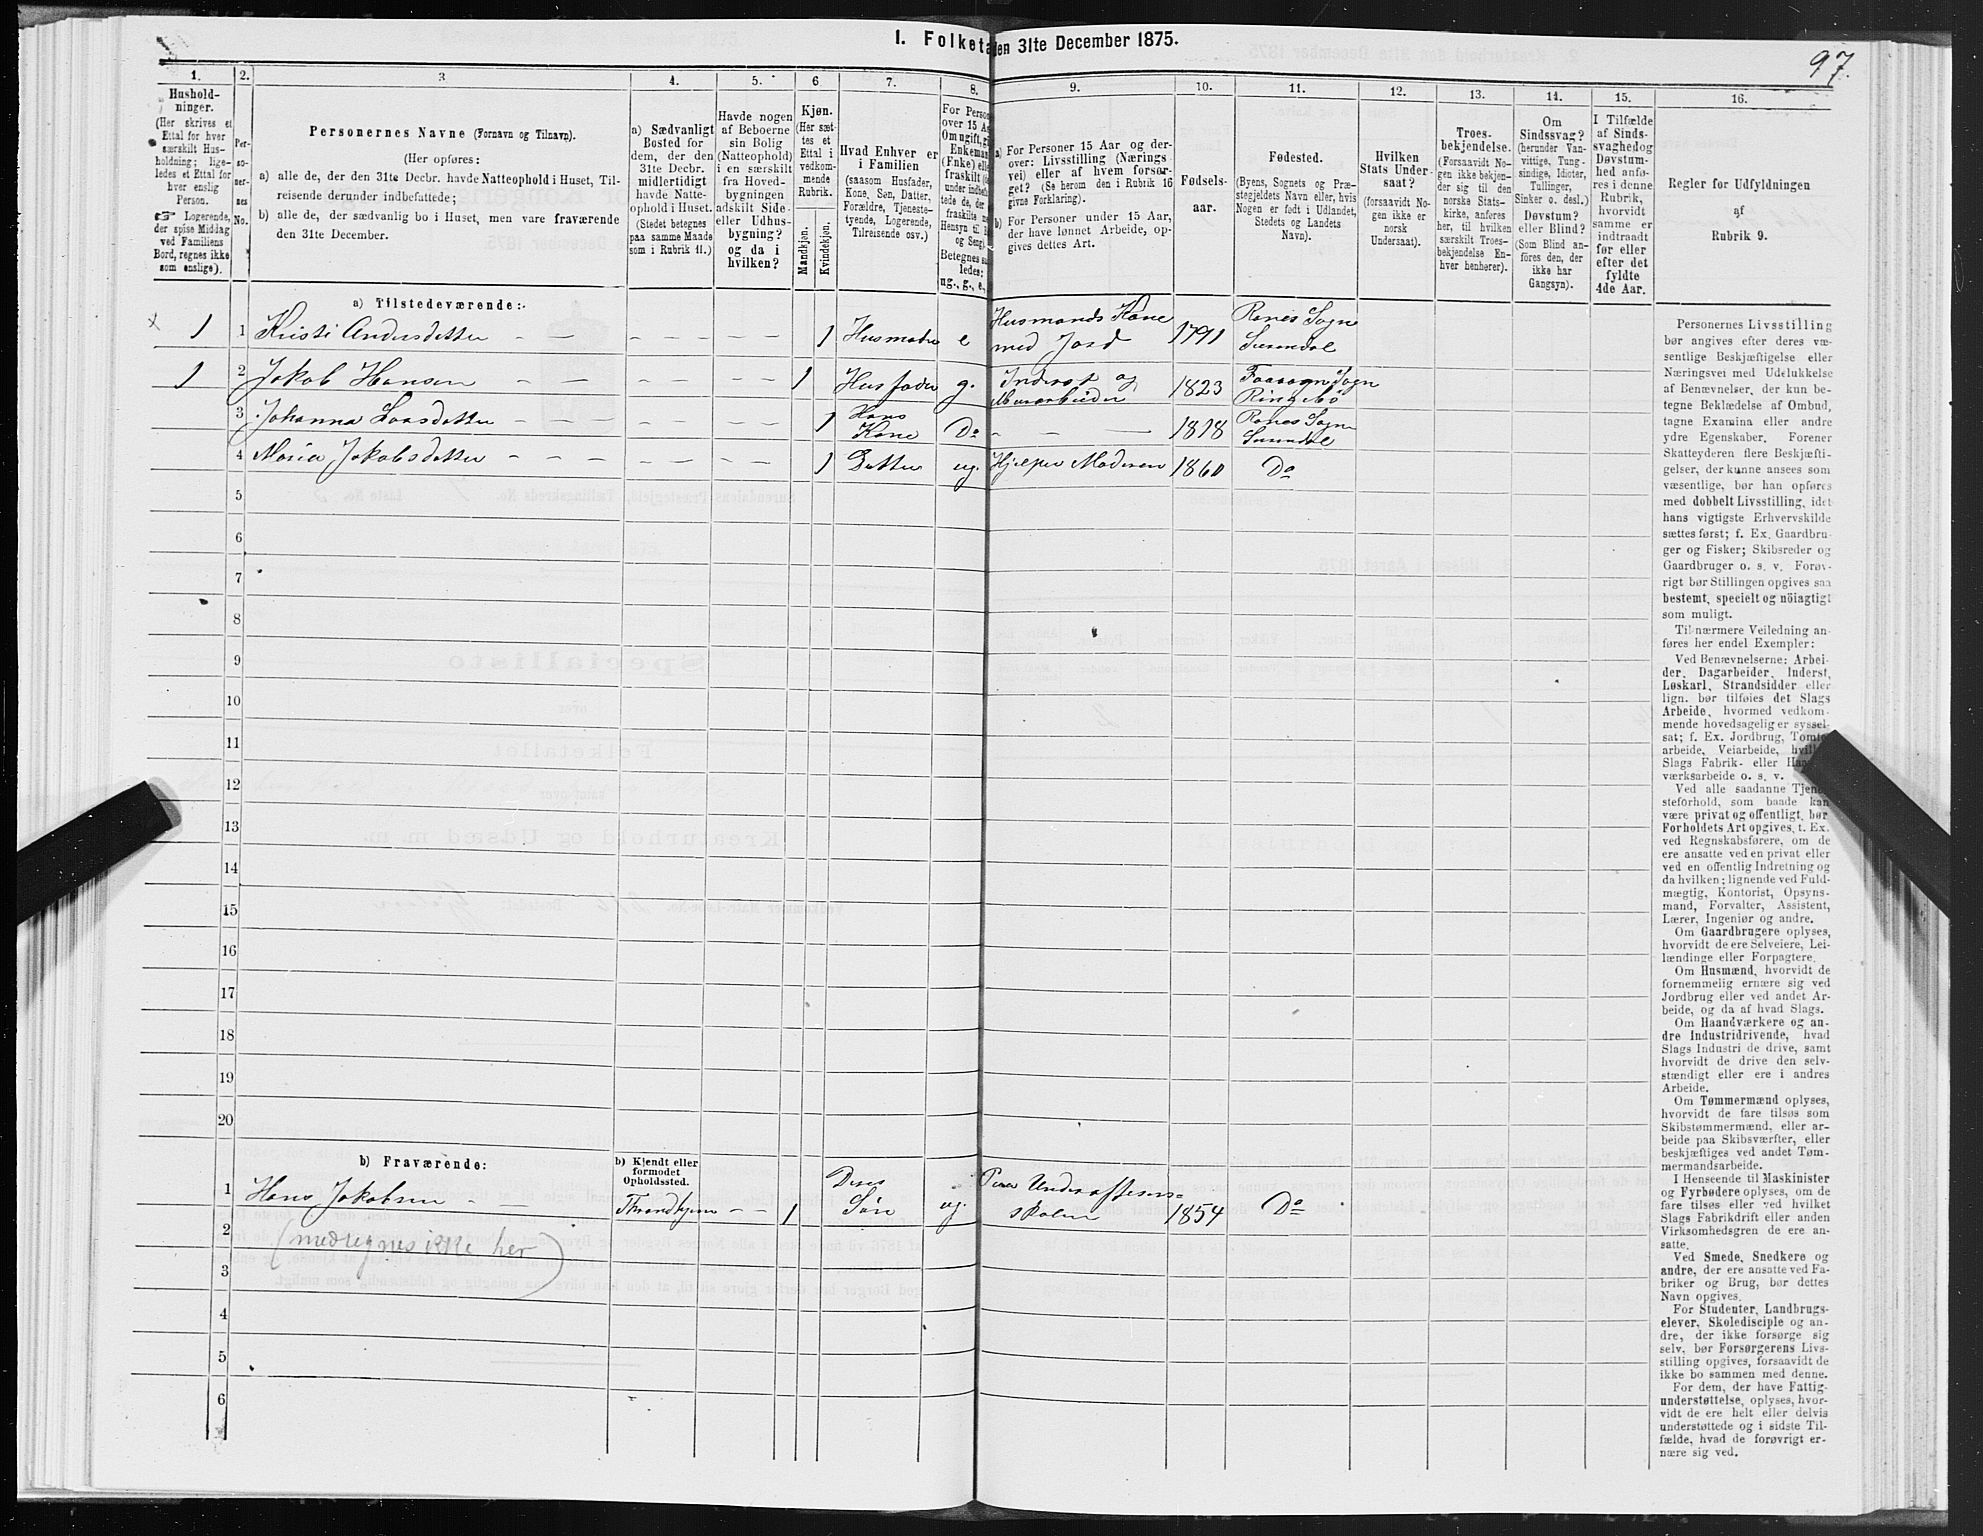 I. Folketa
den 31te December 1875.
97.
1.
2.
3
4.
5.
6
7.
8.
9.
10.
11.
12.
13.
14.
15.
16.
Hushold-
ninger.
(Her skrives et
Ettal for hver
særskilt Hus-
holdning; lige-
ledes et Ettal for
hver enslig
Person.
☞ Logerende,
der spise Middag
ved Familiens
Bord, regnes ikke
som enslige).
Per-
so-
ner-
nes
No.
Personernes Navne (Fornavn og Tilnavn).
(Her opføres:
a) alle de, der den 31te Decbr. havde Natteophold i Huset, Til-
reisende derunder indbefattede;
b) alle de, der sædvanlig bo i Huset, men vare fraværende
den 31te December.
a) Sædvanligt
Bosted for
dem, der den
31te Decbr.
midlertidigt
havde Natte-
ophold i Huset.
(Stedet betegnes
paa samme Maade
som i Rubrik 11.)
Havde nogen
af Beboerne
sin Bolig
(Natteophold)
i en særskilt
fra Hoved-
bygningen
adskilt Side-
eller Udhus-
bygning?
og da i
hvilken?
Kjøn.
(Her sæt-
tes et
Ettal i
vedkom-
mende
Rubrik.
Mandkjøn.
Kvindekjøn.
Hvad Enhver er
i Familien
(saasom Husfader,
Kone, Søn, Datter,
Forældre, Tjeneste-
tyende, Logerende,
Tilreisende osv.)
For Perso
over 15 A
Om ugift, gi
Enkeman
(Enke) ell
fraskilt (
under indbef
tede de, der
fraskilte m
Hensyn til B
og Seng)
Betegnes sa
ledes:
ug., g., e.,
a) For Personer 15 Aar og der-
over: Livsstilling (Nærings
vei) eller af hvem forsør-
get? (Se herom den i Rubrik 16
givne Forklaring).
b) For Personer under 15 Aar,
der have lønnet Arbeide, op-
gives dettes Art.
Fødsels-
aar.
Fødested.
(Byens, Sognets og Præ-
stegjeldets Navn eller, hvis
Nogen er født i Udlandet,
Stedets og Landets
Navn).
Hvilken
Stats Under-
saat?
(forsaavidt No-
gen ikke er
norsk
Undersaat).
Troes-
bekjendelse.
(Forsaavidt No-
gen ikke bekjen-
der sig til den
norske Stats-
kirke, anføres
her, til hvilken
særskilt Troes-
bekjendelse En-
hver henhører).
Om
Sindssvag?
(herunder Van-
vittige, Tung-
sindige, Idioter,
Tullinger,
Sinker o. desl.)
Døvstum?
eller Blind?
(Som Blind an-
føres den, der
ikke har
Gangsyn).
I Tilfælde
af Sinds-
svaghed og
Døvstum-
hed anfø-
res i denne
Rubrik,
hvorvidt
samme er
indtraadt
før eller
efter det
fyldte
4de Aar.
Regler for Udfyldningen
af
Rubrik 9.
a) Tilstedeværende:
1 1 Kristi Andersdatter 1 Husmoder e Husmands Kone med Jord 1791 Ranes Sogn Surendal
1 2 Jakob Hansen 1 Husfader g. Inderst og Murarbeider 1823 Sogn
3 Johanna Larsdatter 1 Hans Kone Do 1818 Ranes Sogn Surendal
4 Maria Jakobsdatter 1 Datter ug. Hjelper Moderen 1860 Do
5
6
7
8
9
10
11
12
13
14
15
16
17
18
19
20
b) Fraværende:
b) Kjendt eller
formodet
Opholdssted.
1 Hans Jakobsen Throndhjem 1 Deres Søn ug. Underofficers=skolen 1854 Do
2 (medregnes ikke her)
3
4
5
6
Personernes Livsstilling
bør angives efter deres væ-
sentlige Beskjæftigelse eller
Næringsvei med Udelukkelse
af Benævnelser, der kun be-
tegne Beklædelse af Ombud,
tagne Examina eller andre
ydre Egenskaber. Forener
Skatteyderen flere Beskjæfti-
gelser, der kunne ansees som
væsentlige, bør han opføres
med dobbelt Livsstilling, idet
hans vigtigste Erhvervskilde
sættes først; f. Ex. Gaardbru-
ger og Fisker; Skibsreder og
Gaardbruger o. s. v. Forøv-
rigt bør Stillingen opgives saa
bestemt, specielt og nöiagtigt
som muligt.
Til nærmere Veiledning an-
føres her endel Exempler:
Ved Benævnelserne: Arbei-
der, Dagarbeider, Inderst,
Løskarl, Strandsidder eller
lign. bør tilføies det Slags
Arbeide, hvormed vedkom-
mende hovedsagelig er syssel-
sat; f. Ex. Jordbrug, Tomte-
arbeide, Veiarbeide, hvilket
Slags Fabrik- eller Haand-
værksarbeide o. s. v.
Ved alle saadanne Tjene-
steforhold, som baade kan
være privat og offentligt, bør
Forholdets Art opgives, t. Ex.
ved Regnskabsførere, om de
ere ansatte ved en privat eller
ved en offentlig Indretning og
da hvilken; lignende ved Fuld-
mægtig, Kontorist, Opsyns-
mand, Forvalter, Assistent,
Lærer, Ingeniør og andre.
Om Gaardbrugere oplyses,
hvorvidt de ere Selveiere, Lei-
lændinge eller Forpagtere.
Om Husmænd, hvorvidt de
fornemmelig ernære sig ved
Jordbrug eller ved andet Ar-
beide, og da af hvad Slags.
Om Haandværkere og an-
dre Industridrivende, hvad
Slags Industri de drive, samt
hvorvidt de drive den selv-
stændigt eller ere i andres
Arbeide.
Om Tømmermænd oplyses,
hvorvidt de fare tilsøs som
Skibstømmermænd, eller ar-
beide paa Skibsværfter, eller
beskjæftiges ved andet Tøm-
mermandsarbeide.
I Henseende til Maskinister
og Fyrbødere oplyses, om de
fare tilsøs eller ved hvilket
Slags Fabrikdrift eller anden
Virksomhedsgren de ere an-
satte.
Ved Smede, Snedkere og
andre, der ere ansatte ved Fa-
briker og Brug, bør dettes
Navn opgives.
For Studenter, Landbrugs-
elever, Skoledisciple og an-
dre, der ikke forsørge sig
selv, bør Forsørgerens Livs-
stilling opgives, forsaavidt de
ikke bo sammen med denne.
For dem, der have Fattig-
understøttelse, oplyses, hvor-
vidt de ere helt eller delvis
understøttede og i sidste Til-
fælde, hvad de forøvrigt er-
nære sig ved.